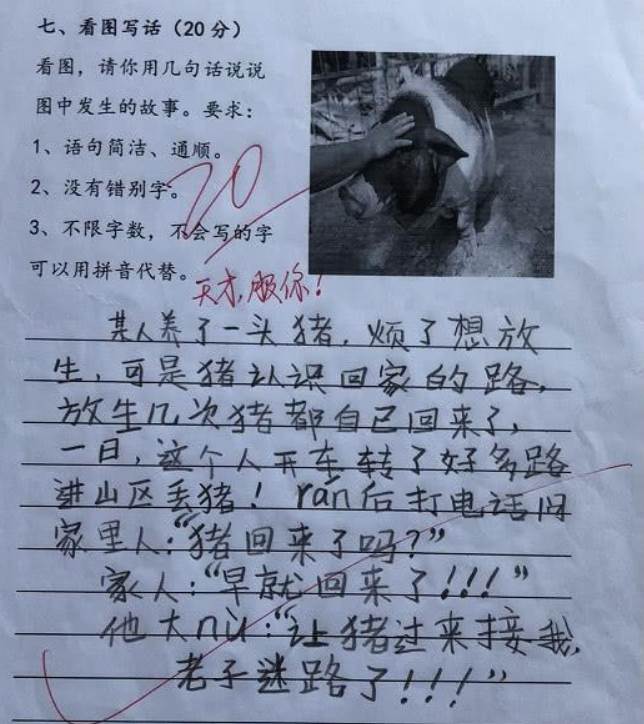 七、看图写话（20分）
看图，请你用几句话说说
图中发生的故事。要求：
1、语句简洁、通顺。
2、没有错别字。
3、不限字数，不会写的字
可以用拼音代替。
20
天才,服你！
某人养了一头猪，烦了想放
生，可是猪认识回家的路，
放生几次猪都自己回来了，
一日，这个人开车转了好多路
进山区丢猪！rán后打电话问
家里人：“猪回来了吗？”
家人：“早就回来了！！！”
他大nù：“让猪过来接我，
老子迷路了！！！”